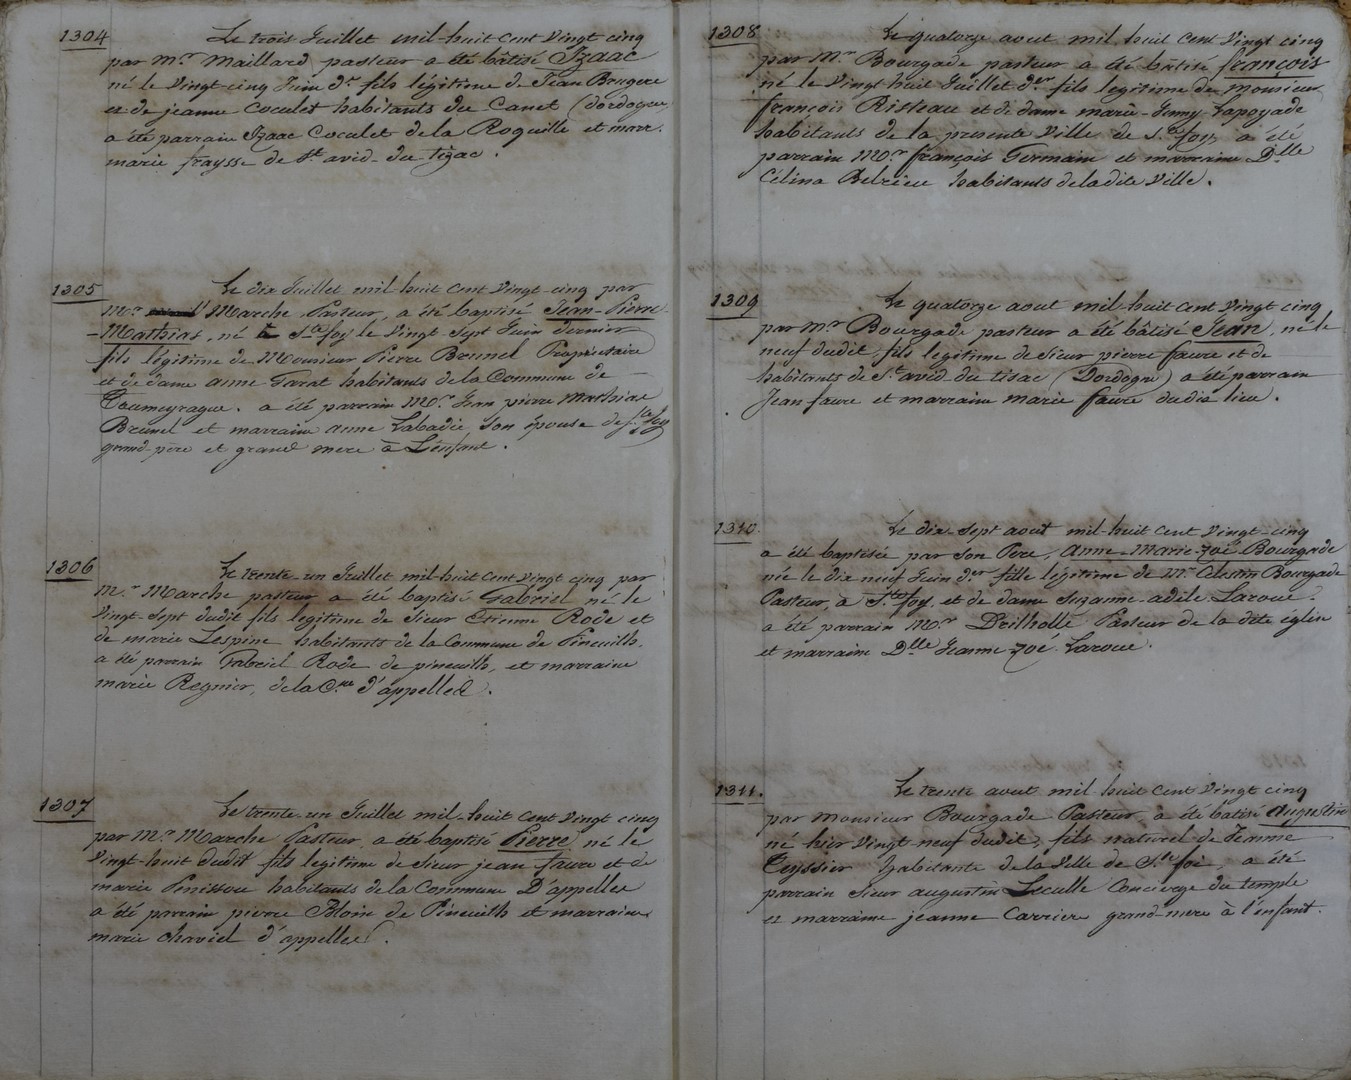 1304
Le trois Juillet mil-huit cent vingt cinq
par mr. Maillard pasteur a été bâtisé Izaac
né le vingt cinq Juin dr. fils légitime de Jean Brugere
et de jeanne Coculet habitants du Canet (dordogne
a été parrain Izaac Coculet de la Roquille et marr.
marie fraysse de St avid-du tizac.
1305
Le dix Juillet mil-huit cent vingt-cinq par
Mr. Marche Pasteur, a été baptisé Jean-Pierre
-Mathias, né à Ste foy le vingt sept Juin dernier
fils légitime de Monsieur Pierre Brunel Propriétaire
et de dame anne Tarat habitants de la Commune de
Toumeyrague. a été parrain Mr. Jean pierre Mathias
Brunel et marraine anne Labadie, son épouse de Ste foy
grand-père et grand mere à L'enfant.
1306
Le trente-un Juillet mil-huit cent vingt cinq par
Mr. Marche pasteur a été baptisé Gabriel né le
vingt-sept dudit fils legitime de Sieur Etienne Rode et
de marie Lespine habitants de la Commune de Pineuilh,
a été parrain Gabriel Rode de pineuilh, et marraine
marie Regnier, de la Cne d'appelles.
1307
Le trente-un Juillet mil-huit cent vingt cinq
par Mr. Marche Pasteur a été baptisé Pierre, né le
vingt-huit dudit fils legitime de Sieur jean faure et de
marie Penissou habitants de la Commune D'appelles
a été parrain pierre Bloin de Pineuilh et marraine
marie chaviel d'appelles.
1308
Le quatorze aout mil huit cent vingt cinq
par Mr. Bourgade pasteur a été bâtisé françois
né le vingt huit Juillet der. fils legitime de Monsieur
françois Risteau et de dame marie-Jenny Lapoyade
habitants de la presente Ville de Ste foy, a été
parrain Mr. françois Germain et marraine Dlle
Célina Belrieu habitants de la dite Ville.
1309
Le quatorze aout mil-huit cent vingt cinq
par mr. Bourgade pasteur a été bâtisé Jean, né le
neuf dudit, fils legitime de Sieur pierre faure et de
habitants de St. avid du tisac (Dordogne) a été parrain
Jean faure et marraine marie faure dudit lieu.
1310.
Le dix-sept aout mil-huit cent vingt-cinq
a été baptisée par son Pere, Anne-Marie-Zoé-Bourgade
née le dix neuf Juin der fille légitime de Mr. Celestin Bourgade
Pasteur, à Ste foy, et de dame Suzanne-adèle Laroue.
a été parrain Mr. Drilholle Pasteur de la dite église
et marraine Dlle Jeanne Zoé Laroue.
1311.
Le trente aout mil-huit cent vingt cinq
par Monsieur Bourgade Pasteur, a été batisé Augustin
né hier vingt neuf dudit, fils naturel de Jeanne
Teyssier habitante de la Ville de Ste foi a été
parrain Sieur augustin Leculle Concierge du temple
et marraine jeanne Carriere grand-mere à l'enfant.